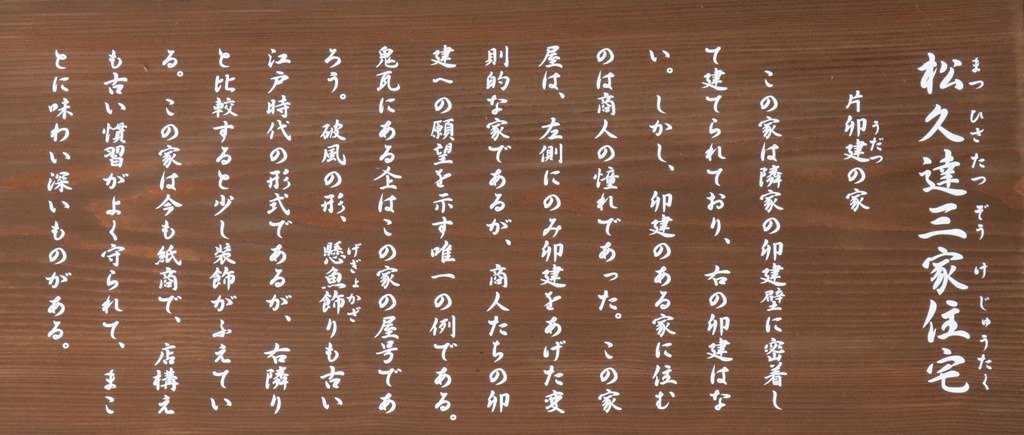 松久達三家住宅
まつひさたつぞうけじゅうたく
片卯建の家
うだつ
この家は隣家の卯建壁に密着し
て建てられており、右の卯建はな
い。しかし、卯建のある家に住む
のは商人の憧れであった。この家
屋は、左側にのみ卯建をあげた変
則的な家であるが、商人たちの卯
建への願望を示す唯一の例である。
鬼瓦にある仝はこの家の屋号であ
ろう。破風の形、懸魚飾りも古い
げぎょかざ
江戸時代の形式であるが、右隣り
と比較すると少し装飾がふえてい
る。この家は今も紙商で、店構え
も古い慣習がよく守られて、まこ
とに味わい深いものがある。